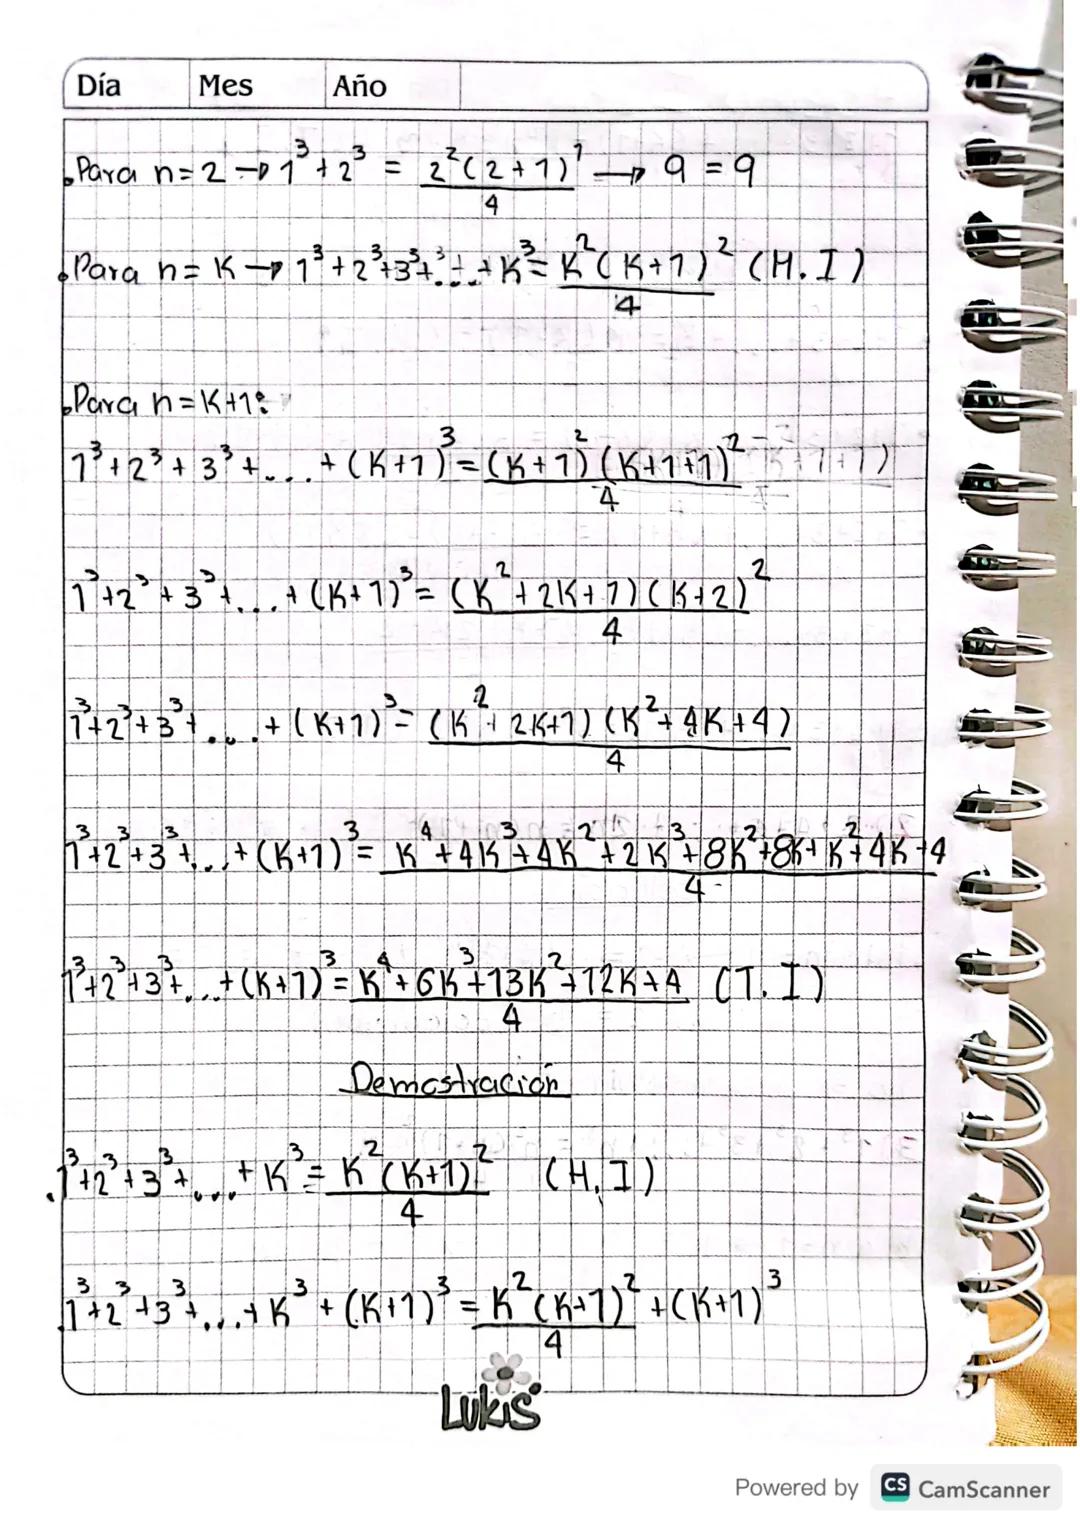 Día Mes Año
.Para n=2 → 1³+2³ = 2²(2+1)² / 4 → 9 = 9
.Para n=K → 1³+2³+3³+...+K³ = K²(K+1)² / 4 (H.I)
.Para n=K+1:
1³+2³+3³+....+(K+1)³ = (K+1)²(K+1+1)² / 4
1³+2³+3³+...+(K+1)³ = (K²+2K+1)(K+2)² / 4
1³+2³+3³+....+(K+1)³ = (K²+2K+1)(K²+4K+4) / 4
1³+2³+3³+...+(K+1)³ = K⁴+4K³+4K²+2K³+8K²+8K+K²+4K+4 / 4
1³+2³+3³+...+(K+1)³ = K⁴+6K³+13K²+12K+4 / 4 (T.I)
Demostración
.1³+2³+3³+...+K³ = K²(K+1)² / 4 (H.I)
.1³+2³+3³+...+K³+(K+1)³ = K²(K+1)² / 4 +(K+1)³
Lukis
Powered by CS CamScanner